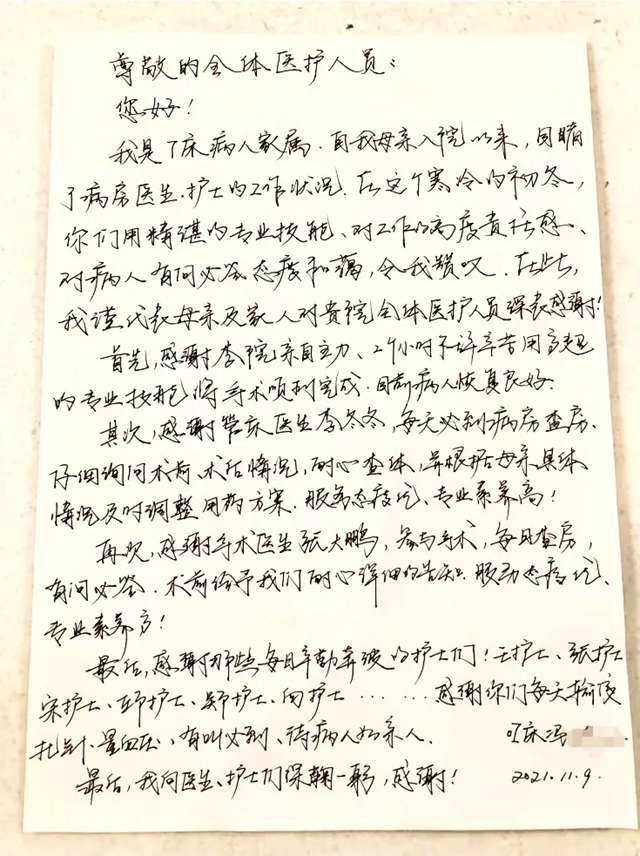 尊敬的全体医护人员：
您好！
我是7床病人家属．自我母亲入院以来，目睹
了病房医生．护士的工作状况．在这个寒冷的初冬，
你们用精湛的专业技能、对工作的高度责任感、
对病人有问必答态度和蔼，令我赞叹．在此，
我谨代表母亲及家人对贵院全体医护人员深表感谢！
首先，感谢李院亲自主力、2个小时不辞辛苦用高超
的专业技能将手术顺利完成．目前病人恢复良好．
其次，感谢管床医生李冬冬，每天必到病房查房．
仔细询问术前．术后情况，耐心查体，并根据母亲具体
情况及时调整用药方案．服务态度优、专业素养高！
再次，感谢手术医生张大鹏，参与手术，每日查房，
有问必答．术前给予我们耐心详细的告知．服务态度优、
专业素养高！
最后，感谢那些每日辛勤奔波的护士们！王护士、张护士
宋护士、护士、郭护士、田护士……感谢你们每天输液
扎针．量血压、有叫必到、待病人如亲人．
最后，我向医生、护士们深鞠一躬，感谢！
7床冯
2021.11.9